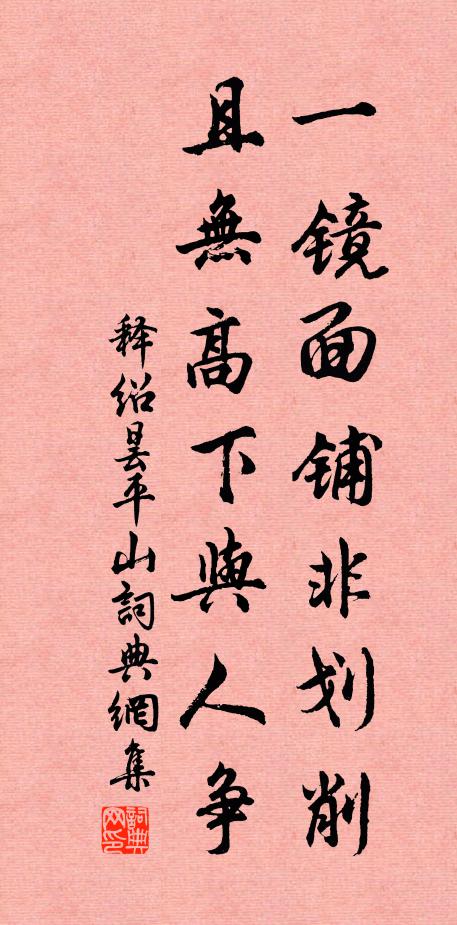 一镜面铺非划削
且無高下與人争
释绍昙平山詞典網集
詞典网印